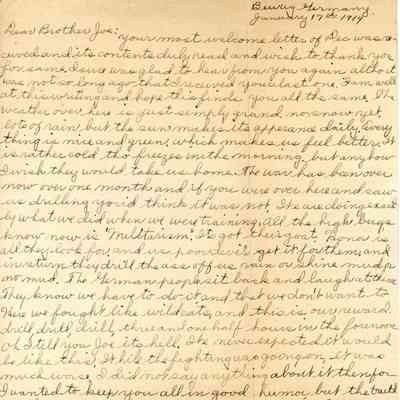 Germany
January 17th 1919
Dear Brother Joe:
your most welcome letter of Dec was re-
ceived and its contents duly read and wish to thank you
for same. I sure was glad to hear from you again altho it
was not so long ago that I received your last one. I am well
at this writing and hope this finds you all the same. The
weather over here is just simply grand no snow yet
lots of rain, but the sun makes its appearance daily. Every
thing is nice and green, which makes us feel better. It
is rather cold tho freezes in the morning but any how
I wish they would take us home. The war has been over
now over one month and if you were over here and saw
us drilling you'd think it was not. We are doing exact
ly what we did when we were training. All the high
know now is "Militarism". Its got their goat. is
all they look for, and us poor devils get it for them, and
in return they drill the ass off us rain or shine mud or
no mud. The German people sit back and laugh at these
They know we have to do it and that we don't want to
Here we fought like wildcats, and this is our reward
drill, drill, drill, three and one half hours in the forenoon
I tell you Joe its hell, We never expected it would
be like this. While the fighting was going on, it was
much worse. I did not say anything about it then for
I wanted to keep you all in good humor, but the truth